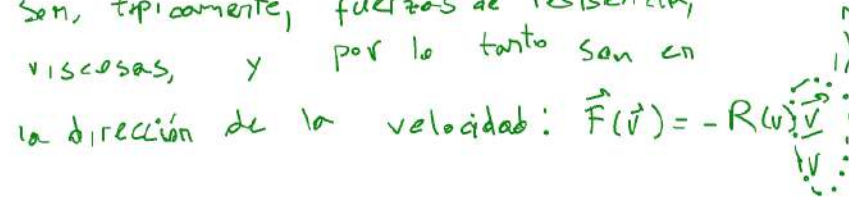 Son, típicamente, fuerzas de resistencia,
viscosas, y por lo tanto son en
la dirección de la velocidad: F⃗(v⃗) = - R(v) v⃗/v